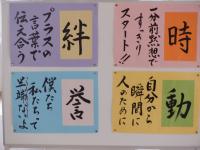 時
一分前黙想で
すっきり
スタート!!
絆
プラスの
言葉で
伝え合う
動
自分から
瞬間に
人のために
誉
僕たち
私たちって